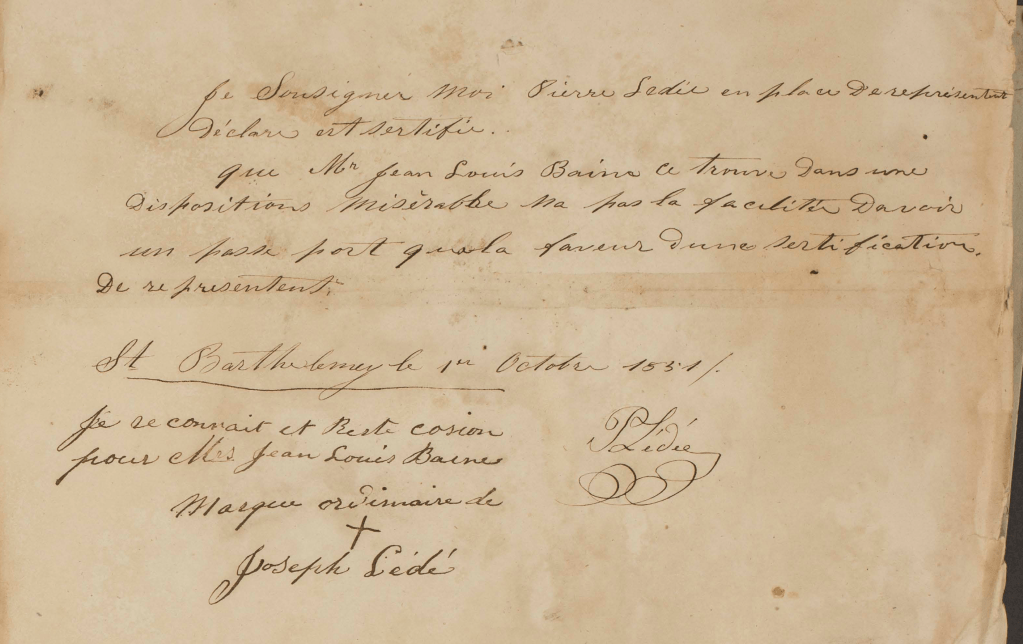 Je Sousigner Moi Pierre Ledée en place De représentent
Déclare est sertifie..
que Mr Jean Louis Baine ce trouve Dans une
Dispositions Misèrable Na pas la facilitée Davoir
un passe port qua la faveur Dune sertification.
De representent.
St Barthelemey le 1er Octobre 1851/.
Je reconnait et Reste cosion
pour Mrs Jean Louis Baine
Marque ordinaire de
+
Joseph Lédé
PLédée